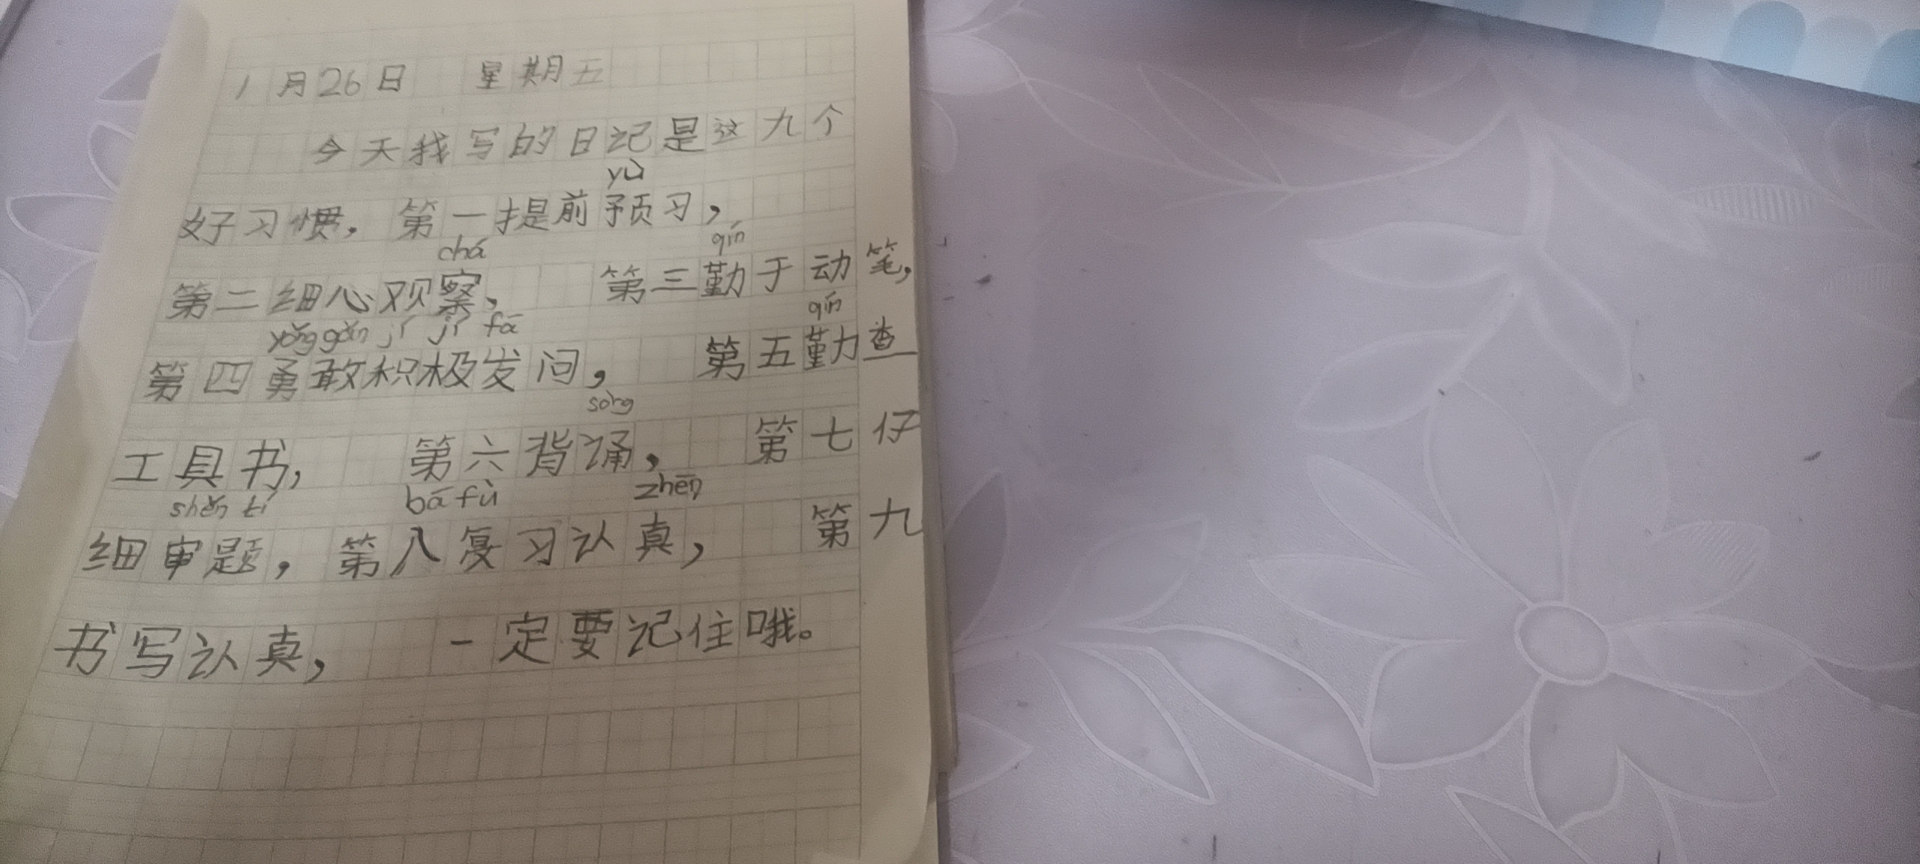 1月26日 星期五
今天我写的日记是这九个
yù
好习惯，第一提前预习，
chá qín
第二细心观察，第三勤于动笔，
yǒng gǎn jī jí fā qín
第四勇敢积极发问，第五勤查
sòng
工具书，第六背诵，第七仔
shěn tí bā fù zhēn
细审题，第八复习认真，第九
书写认真，一定要记住哦。